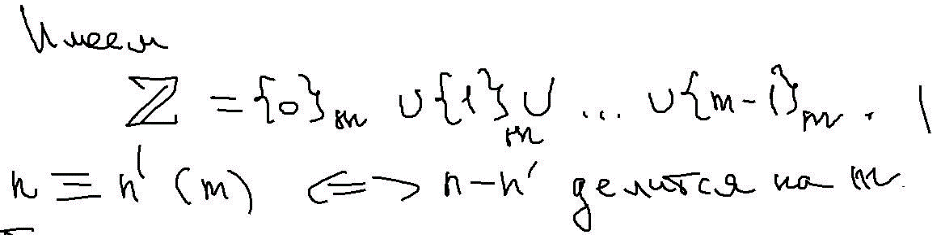 Имеем
ℤ = {0}ₘ ∪ {1}ₘ ∪ ... ∪ {m-1}ₘ.
n ≡ n' (m) <=> n-n' делится на m.